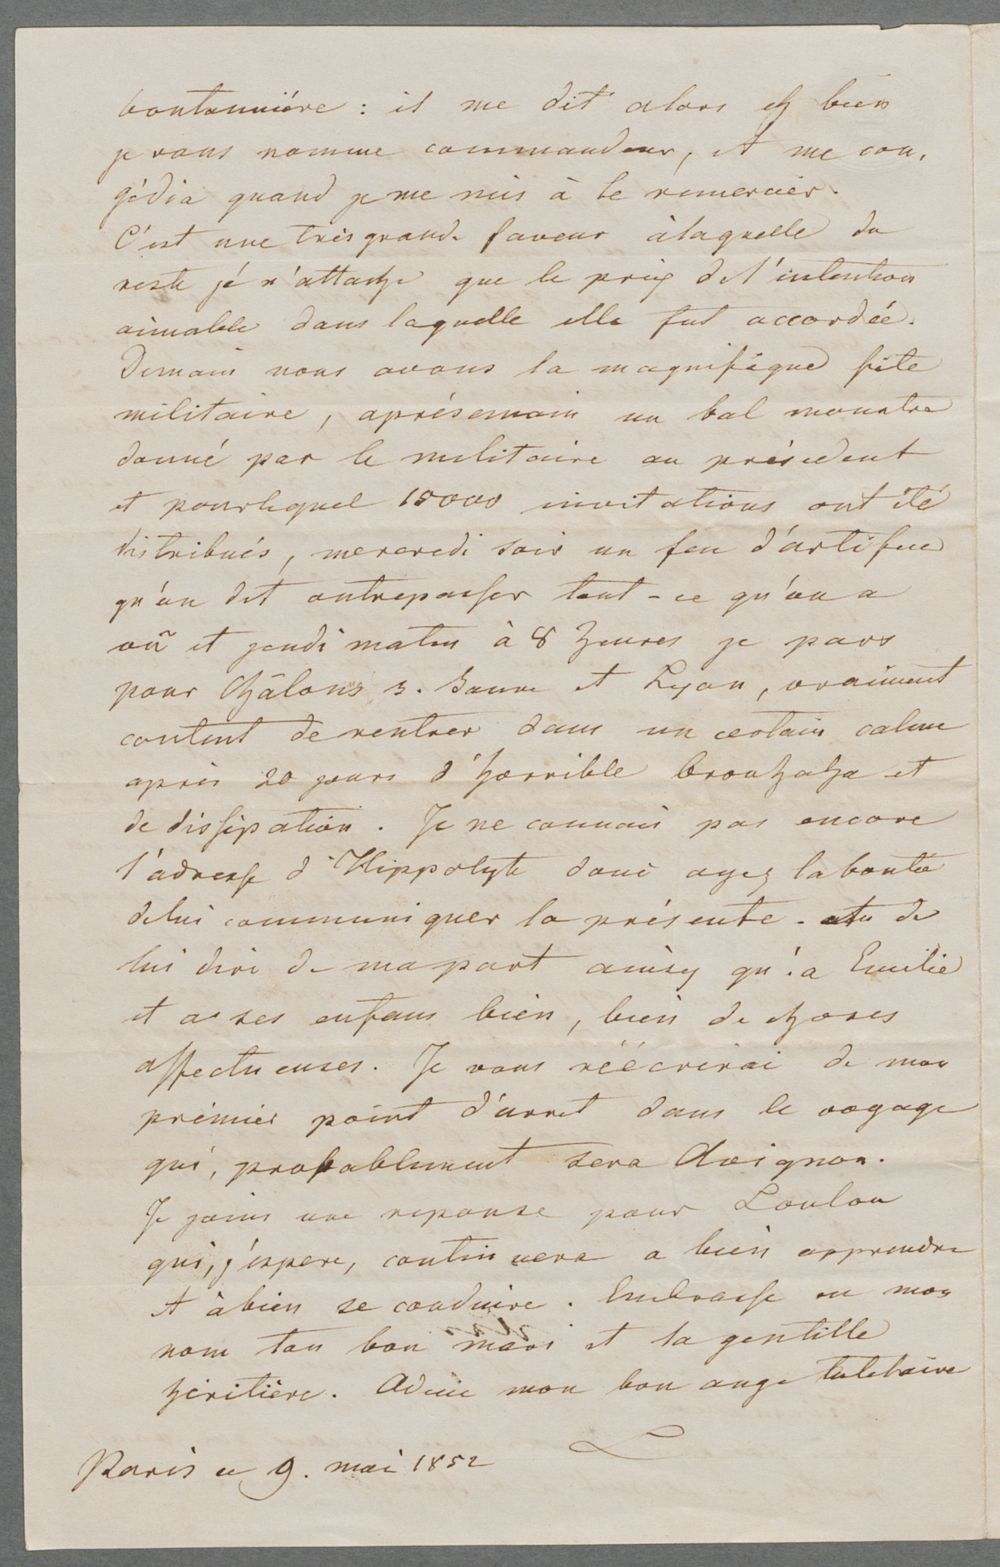 boutonnière : il me dit alors eh bien
je vous nomme commandeur, et me con,
gédia quand je me mis à le rémercier.
C'est une très grande faveur à laquelle du
reste jé n'attache que le prix de l'intention
aimable dans laquelle elle fut accordée.
Demain nous avons la magnifique fête
militaire, aprésemain un bal monstre
donné par le militaire au président
et pour lequel 15000 invitations ont été
distribués, mercredi soir un feu d'artifice
qu'on dit outrepasser tout-ce qu'on a
vû et jeudi matin à 8 heures je pars
pour Châlons s. Saone et Lyon, vraiment
content de rentrer dans un certain calme
après 20 jours d'horrible brouhaha et
de dissipation. Je ne connais pas encore
l'adresse d'Hippolyte donc ayez la bonté
de lui communiquer la présente - et de
lui dire de ma part ainsy qu'a Emilie
et a ses enfans bien, bien de choses
affectueuses. Je vous réécrirai de mon
prémier point d'arret dans le voyage
qui, probablement sera Avignon.
Je joins une reponse pour Loulou
qui, j'espere, continuera a bien apprendre
et à bien se conduire. Embrasse en mon
nom ton bon mari et ta gentille
héritière. Adieu mon bon ange tutelaire
L
Paris ce 9. mai 1852